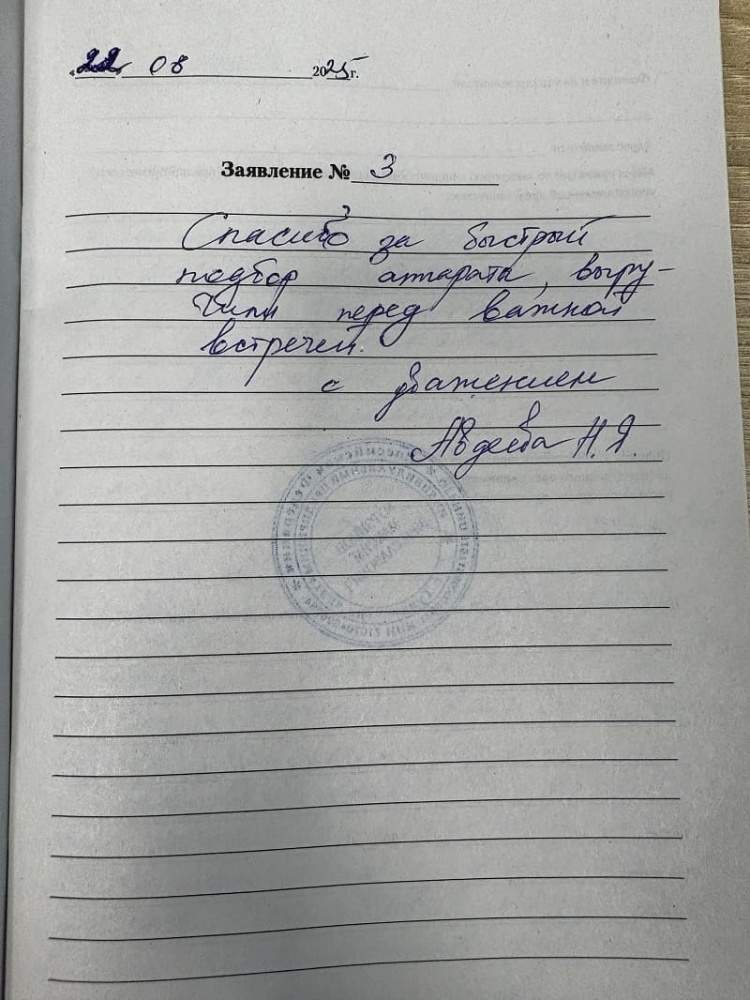 «22» 08 2025г.
Заявление № 3
Спасибо за быстрый
подбор аппарата, выру-
чили перед важной
встречей.
с уважением
Авдеева Н.Я.